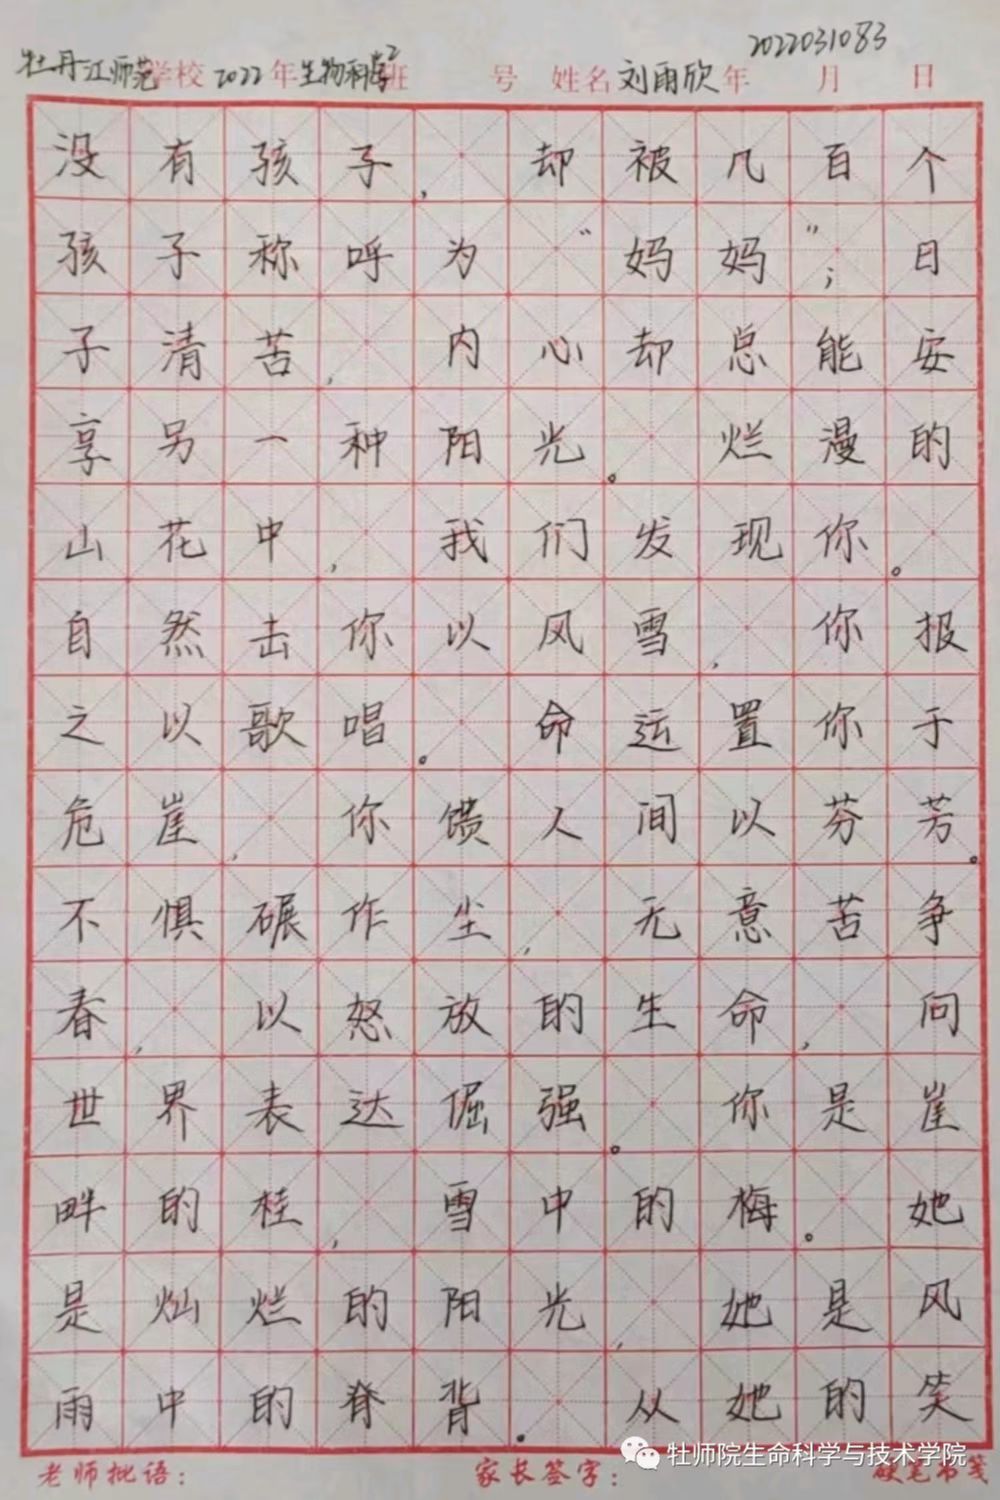 2022031083
牡丹江师范学校 2022年生物科学2班 号 姓名 刘雨欣 年 月 日
没有孩子，却被几百个
孩子称呼为“妈妈”；日
子清苦，内心却总能安
享另一种阳光。烂漫的
山花中，我们发现你。
自然击你以风雪，你报
之以歌唱。命运置你于
危崖，你馈人间以芬芳。
不惧碾作尘，无意苦争
春，以怒放的生命，向
世界表达倔强。你是崖
畔的桂，雪中的梅。她
是灿烂的阳光，她是风
雨中的脊背。从她的笑
牡师院生命科学与技术学院
老师批语： 家长签字： 硬笔书笺